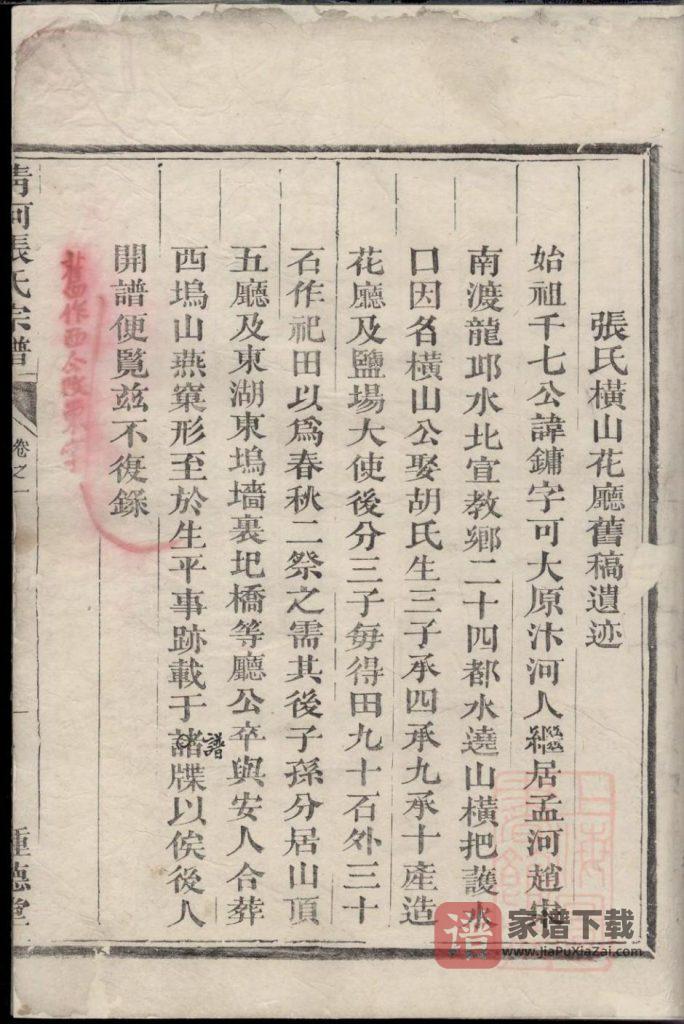 張氏橫山花廳舊稿遺迹
始祖千七公諱鏞字可大原汴河人繼居孟河趙宋
南渡龍邱水北宣教鄉二十四都水遶山橫把護水
口因名橫山公娶胡氏生三子承四承九承十產造
花廳及鹽場大使後分三子每得田九十石外三十
石作祀田以爲春秋二祭之需其後子孫分居山頂
五廳及東湖東塢墻裏圯橋等廳公卒與安人合葬
西塢山燕窠形至於生平事跡載于諸牒以俟後人
譜
開譜便覧玆不復錄
舊作西今改東字
清河張氏宗譜
卷之一
種德堂
谱
家谱下载
www.jiaPuXiaZai.com